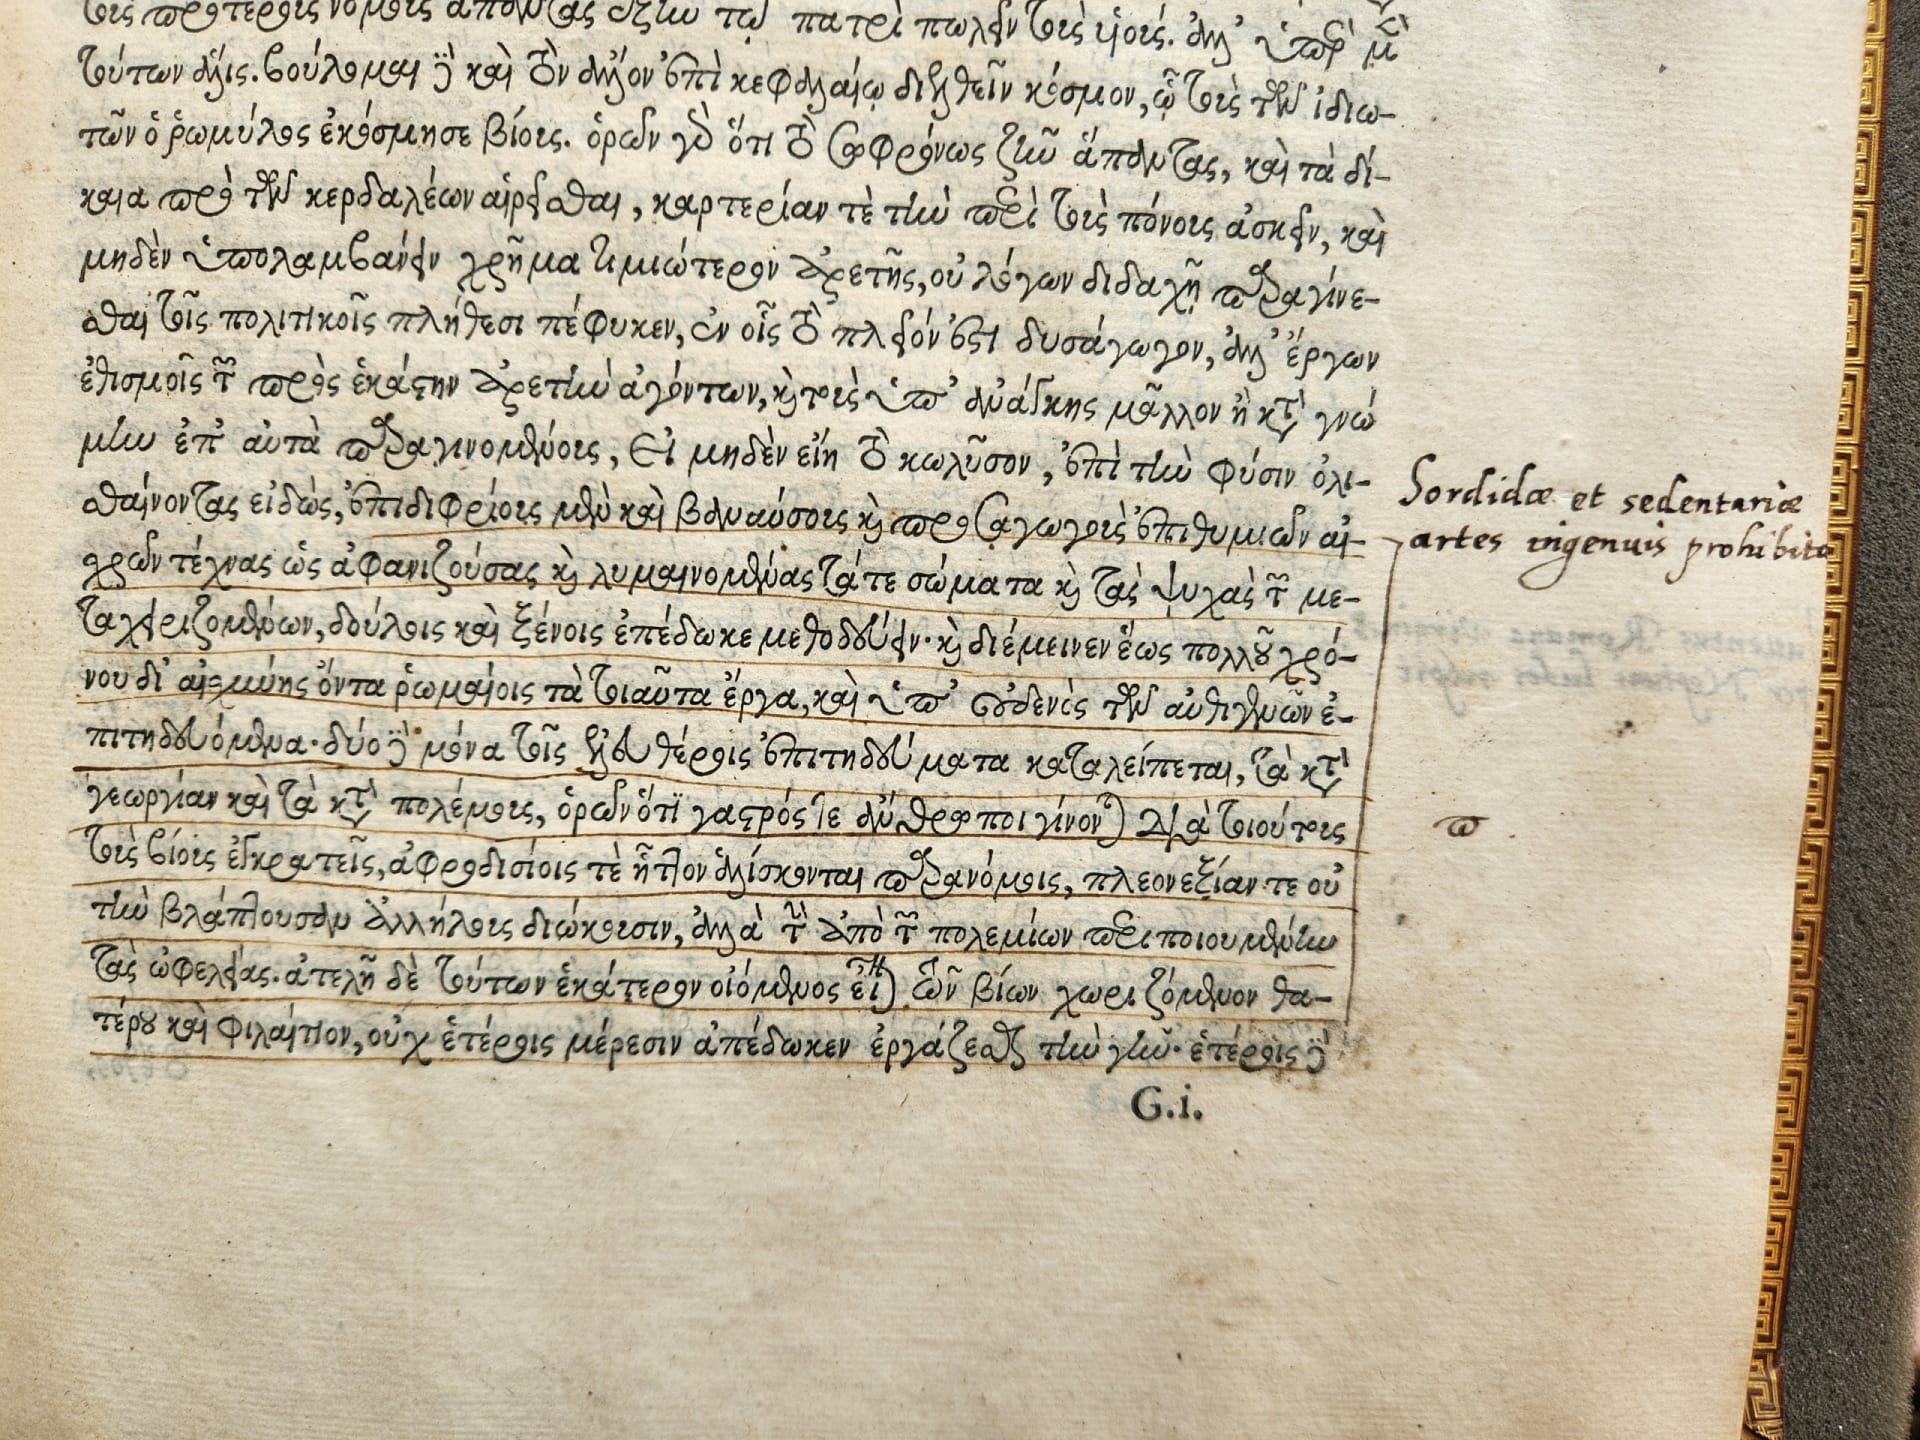 τοῖς προτέροις νόμοις ἀποδύντας ἐξῆν τῷ πατρὶ πωλεῖν τοὺς υἱούς. ἀλλ' ὑπὲρ μὲν
τούτων ἅλις. βούλομαι δὲ καὶ τὸν ἄλλον ἐπὶ κεφαλαίῳ διελθεῖν κόσμον, ᾧ τοὺς τῶν ἰδιω-
τῶν ὁ ῥωμύλος ἐκόσμησε βίους. ὁρῶν γὰρ ὅτι τὸ σωφρόνως ζῆν ἅπαντας, καὶ τὰ δί-
καια πρὸ τῶν κερδαλέων αἱρεῖσθαι, καρτερίαν τὲ τὴν περὶ τοὺς πόνους ἀσκεῖν, καὶ
μηδὲν ὑπολαμβάνειν χρῆμα τιμιώτερον ἀρετῆς, οὐ λόγων διδαχῇ παραγίνε-
σθαι τοῖς πολιτικοῖς πλήθεσι πέφυκεν, ἐν οἷς τὸ πλεῖόν ἐστι δυσάγωγον, ἀλλ' ἔργων
ἐθισμοῖς τῶν πρὸς ἑκάστην ἀρετὴν ἀγόντων, καὶ τοὺς ὑπ' ἀνάγκης μᾶλλον ἢ κατὰ γνώ
μην ἐπ' αὐτὰ παραγινομένους, εἰ μηδὲν εἴη τὸ κωλῦσον, ἐπὶ τὴν φύσιν ὀλι-
σθαίνοντας εἰδὼς, ἐπιδιφρίους μὲν καὶ βαναύσους καὶ προσαγωγοὺς ἐπιθυμιῶν αἰ-
σχρῶν τέχνας ὡς ἀφανιζούσας καὶ λυμαινομένας τά τε σώματα καὶ τὰς ψυχὰς τῶν με-
ταχειριζομένων, δούλοις καὶ ξένοις ἐπέδωκε μεθοδεύειν· καὶ διέμεινεν ἕως πολλοῦ χρό-
νου δι' αἰσχύνης ὄντα ῥωμαίοις τὰ τοιαῦτα ἔργα, καὶ ὑπ' οὐδενὸς τῶν αὐθιγενῶν ἐ-
πιτηδευόμενα· δύο δὲ μόνα τοῖς ἐλευθέροις ἐπιτηδεύματα καταλείπεται, τὰ κατὰ
γεωργίαν καὶ τὰ κατὰ πολέμους, ὁρῶν ὅτι γαστρός τε ἄνθρωποι γίνονται διὰ τούτους
τοὺς βίους ἐγκρατεῖς, ἀφροδισίοις τὲ ἧττον ἁλίσκονται παρανόμοις, πλεονεξίαν τε οὐ
τὴν βλάπτουσαν ἀλλήλους διώκουσιν, ἀλλὰ τὴν ἀπὸ τῶν πολεμίων περιποιουμένην
τὰς ὠφελείας. ἀτελῆ δὲ τούτων ἑκάτερον οἰόμενος εἶναι τῶν βίων χωριζόμενον θα-
τέρου καὶ φιλαίτιον, οὐχ ἑτέροις μέρεσιν ἀπέδωκεν ἐργάζεσθαι τὴν γῆν· ἑτέροις δὲ
G.i.
Sordidæ et sedentariæ
artes ingenuis prohibitæ